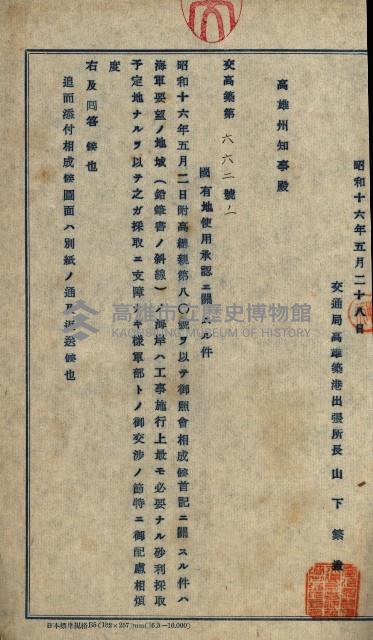 昭和十六年五月二十八日
交通局高雄築港出張所長 山下繁造
高雄州知事殿
交高築第六六二號ノ一
國有地使用承認ニ關スル件
昭和十六年五月二日附高總親第八〇號ヲ以テ御照會相成候首記ニ關スル件ハ
海軍要望ノ地域(鉛筆書ノ斜線)ノ海岸ハ工事施行上最モ必要ナル砂利採取
予定地ナルヲ以テ之ガ採取ニ支障ナキ樣軍部トノ御交渉ノ節特ニ御配慮相煩
度
右及囘答候也
追而添付相成候圖面ハ別紙ノ通及返送候也
高雄市立歷史博物館
KAOHSIUNG MUSEUM OF HISTORY
日本標準規格B5(182×257)mm(16.3—10,000)